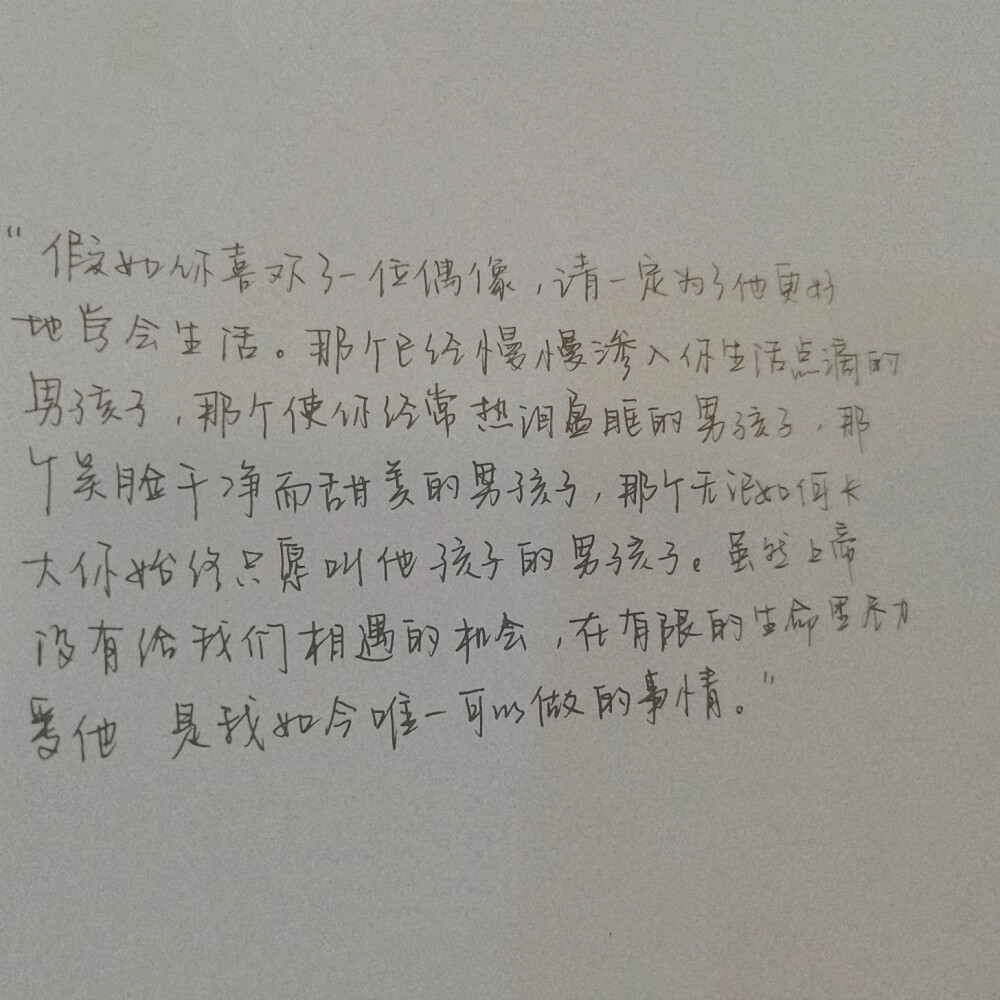 “假如你喜欢了一位偶像,请一定为了他更好
地学会生活。那个已经慢慢渗入你生活点滴的
男孩子,那个使你经常热泪盈眶的男孩子,那
个笑脸干净而甜美的男孩子,那个无论如何长
大你始终只愿叫他孩子的男孩子。虽然上帝
没有给我们相遇的机会,在有限的生命里尽力
爱他 是我如今唯一可以做的事情。”